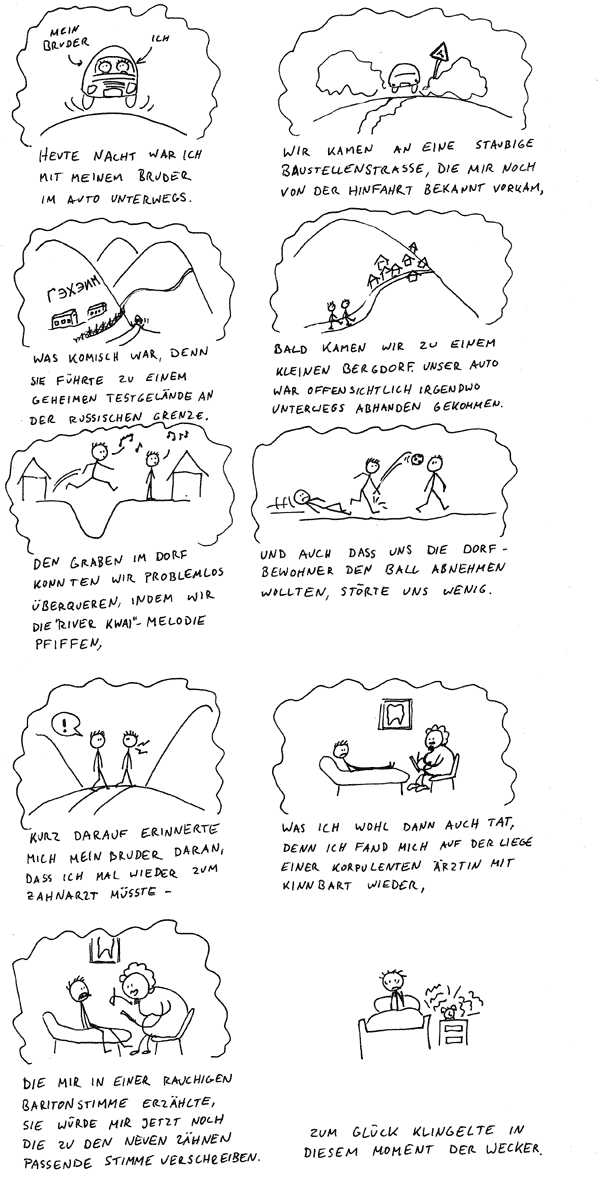 MEIN
BRUDER
ICH
HEUTE NACHT WAR ICH
MIT MEINEM BRUDER
IM AUTO UNTERWEGS.
WIR KAMEN AN EINE STAUBIGE
BAUSTELLENSTRASSE, DIE MIR NOCH
VON DER HINFAHRT BEKANNT VORKAM,
ГЭХЭИМ
WAS KOMISCH WAR, DENN
SIE FÜHRTE ZU EINEM
GEHEIMEN TESTGELÄNDE AN
DER RUSSISCHEN GRENZE.
BALD KAMEN WIR ZU EINEM
KLEINEN BERGDORF. UNSER AUTO
WAR OFFENSICHTLICH IRGENDWO
UNTERWEGS ABHANDEN GEKOMMEN.
DEN GRABEN IM DORF
KONNTEN WIR PROBLEMLOS
ÜBERQUEREN, INDEM WIR
DIE "RIVER KWAI"-MELODIE
PFIFFEN,
UND AUCH DASS UNS DIE DORF-
BEWOHNER DEN BALL ABNEHMEN
WOLLTEN, STÖRTE UNS WENIG.
!
KURZ DARAUF ERINNERTE
MICH MEIN BRUDER DARAN,
DASS ICH MAL WIEDER ZUM
ZAHNARZT MÜSSTE -
WAS ICH WOHL DANN AUCH TAT,
DENN ICH FAND MICH AUF DER LIEGE
EINER KORPULENTEN ÄRZTIN MIT
KINNBART WIEDER,
DIE MIR IN EINER RAUCHIGEN
BARITONSTIMME ERZÄHLTE,
SIE WÜRDE MIR JETZT NOCH
DIE ZU DEN NEUEN ZÄHNEN
PASSENDE STIMME VERSCHREIBEN.
ZUM GLÜCK KLINGELTE IN
DIESEM MOMENT DER WECKER.